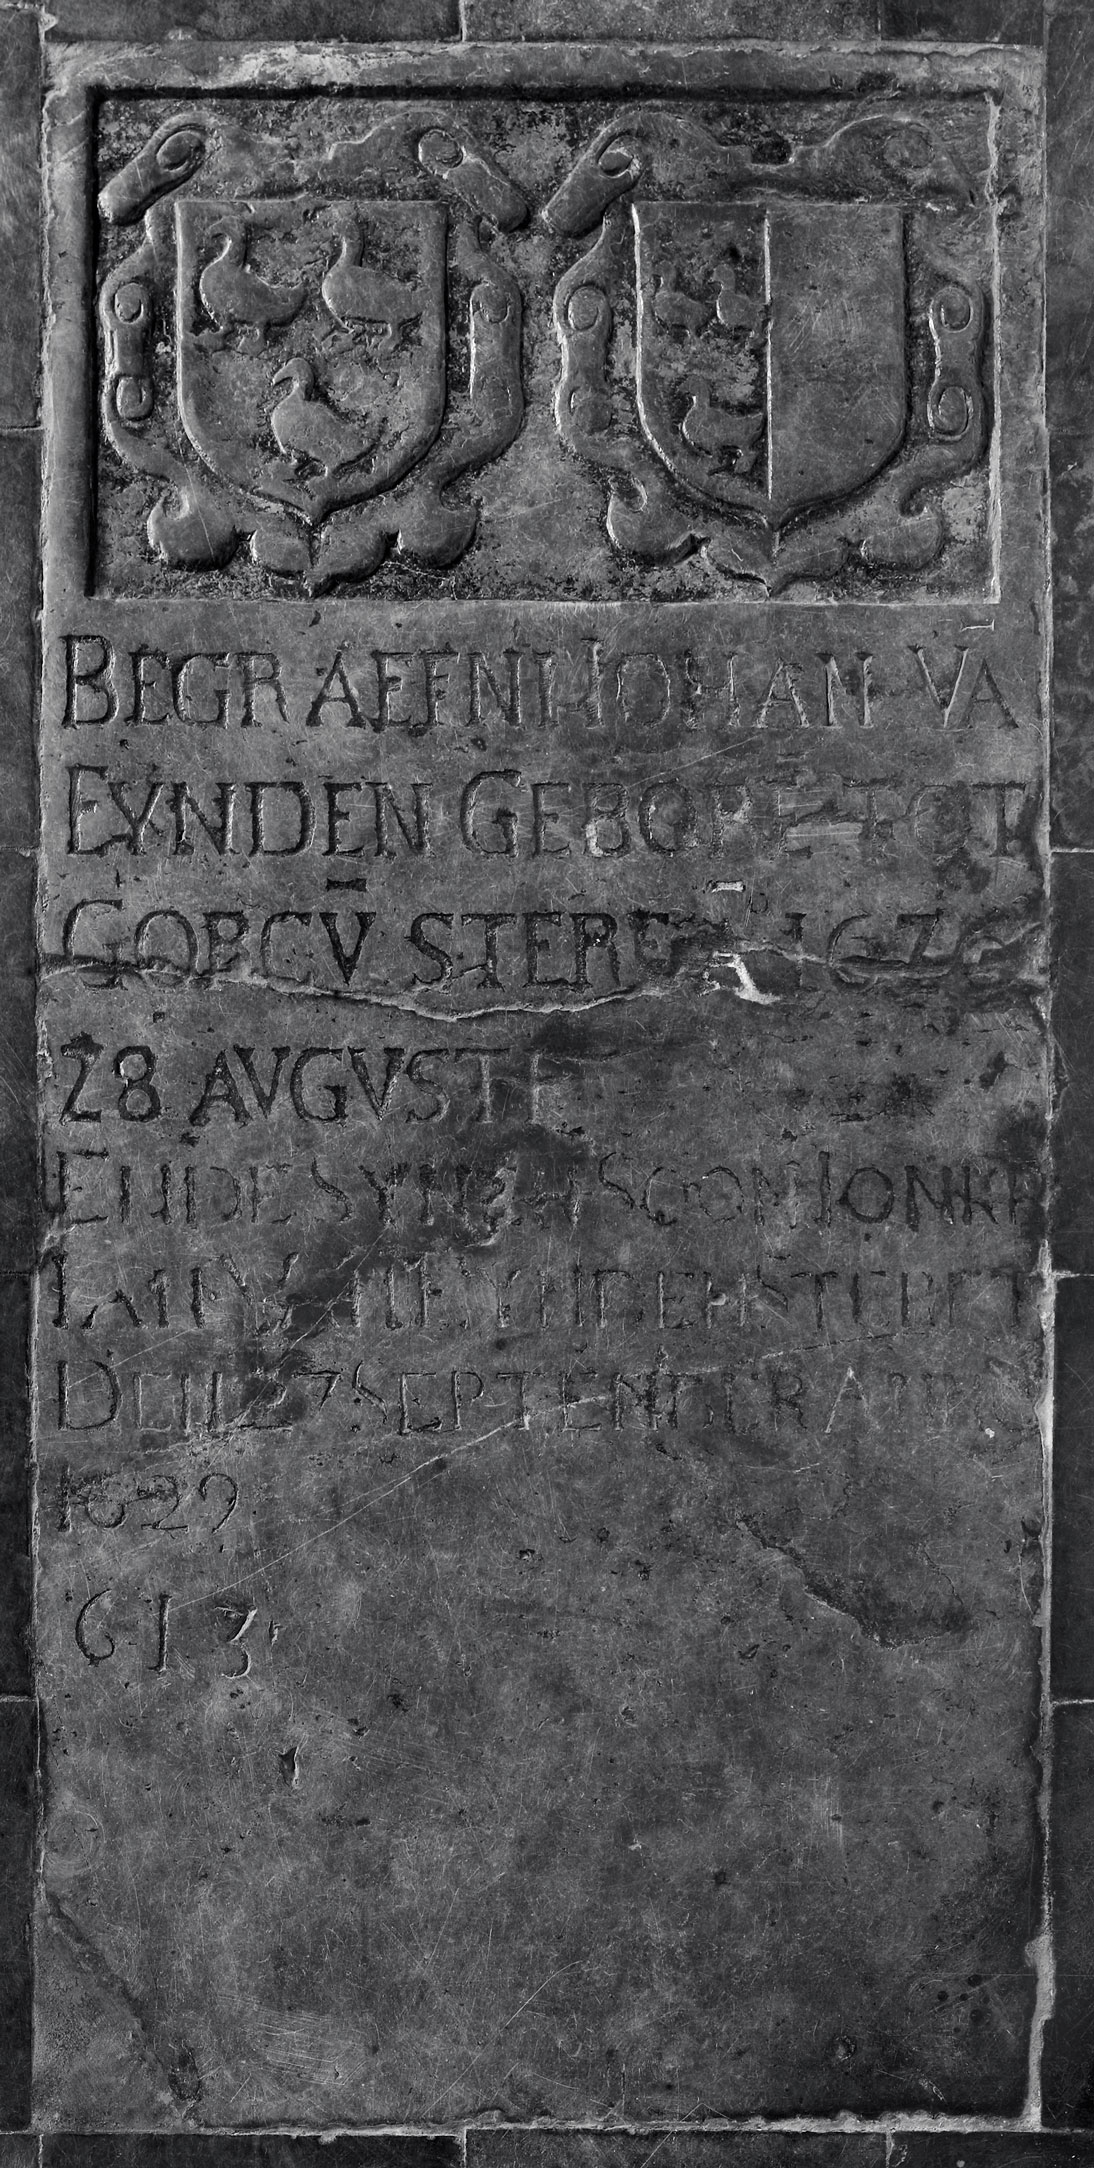 BEGRAEFNIHOHAN VĀ
EYNDEN GEBORĒ TOT
GORCV̄ STERF 1626
28 AVGVSTE
ENDE SYN SOON IONKR
IAN VANEYNDEN STERFT
DEN 27 SEPTENBER ANNO
1629
613